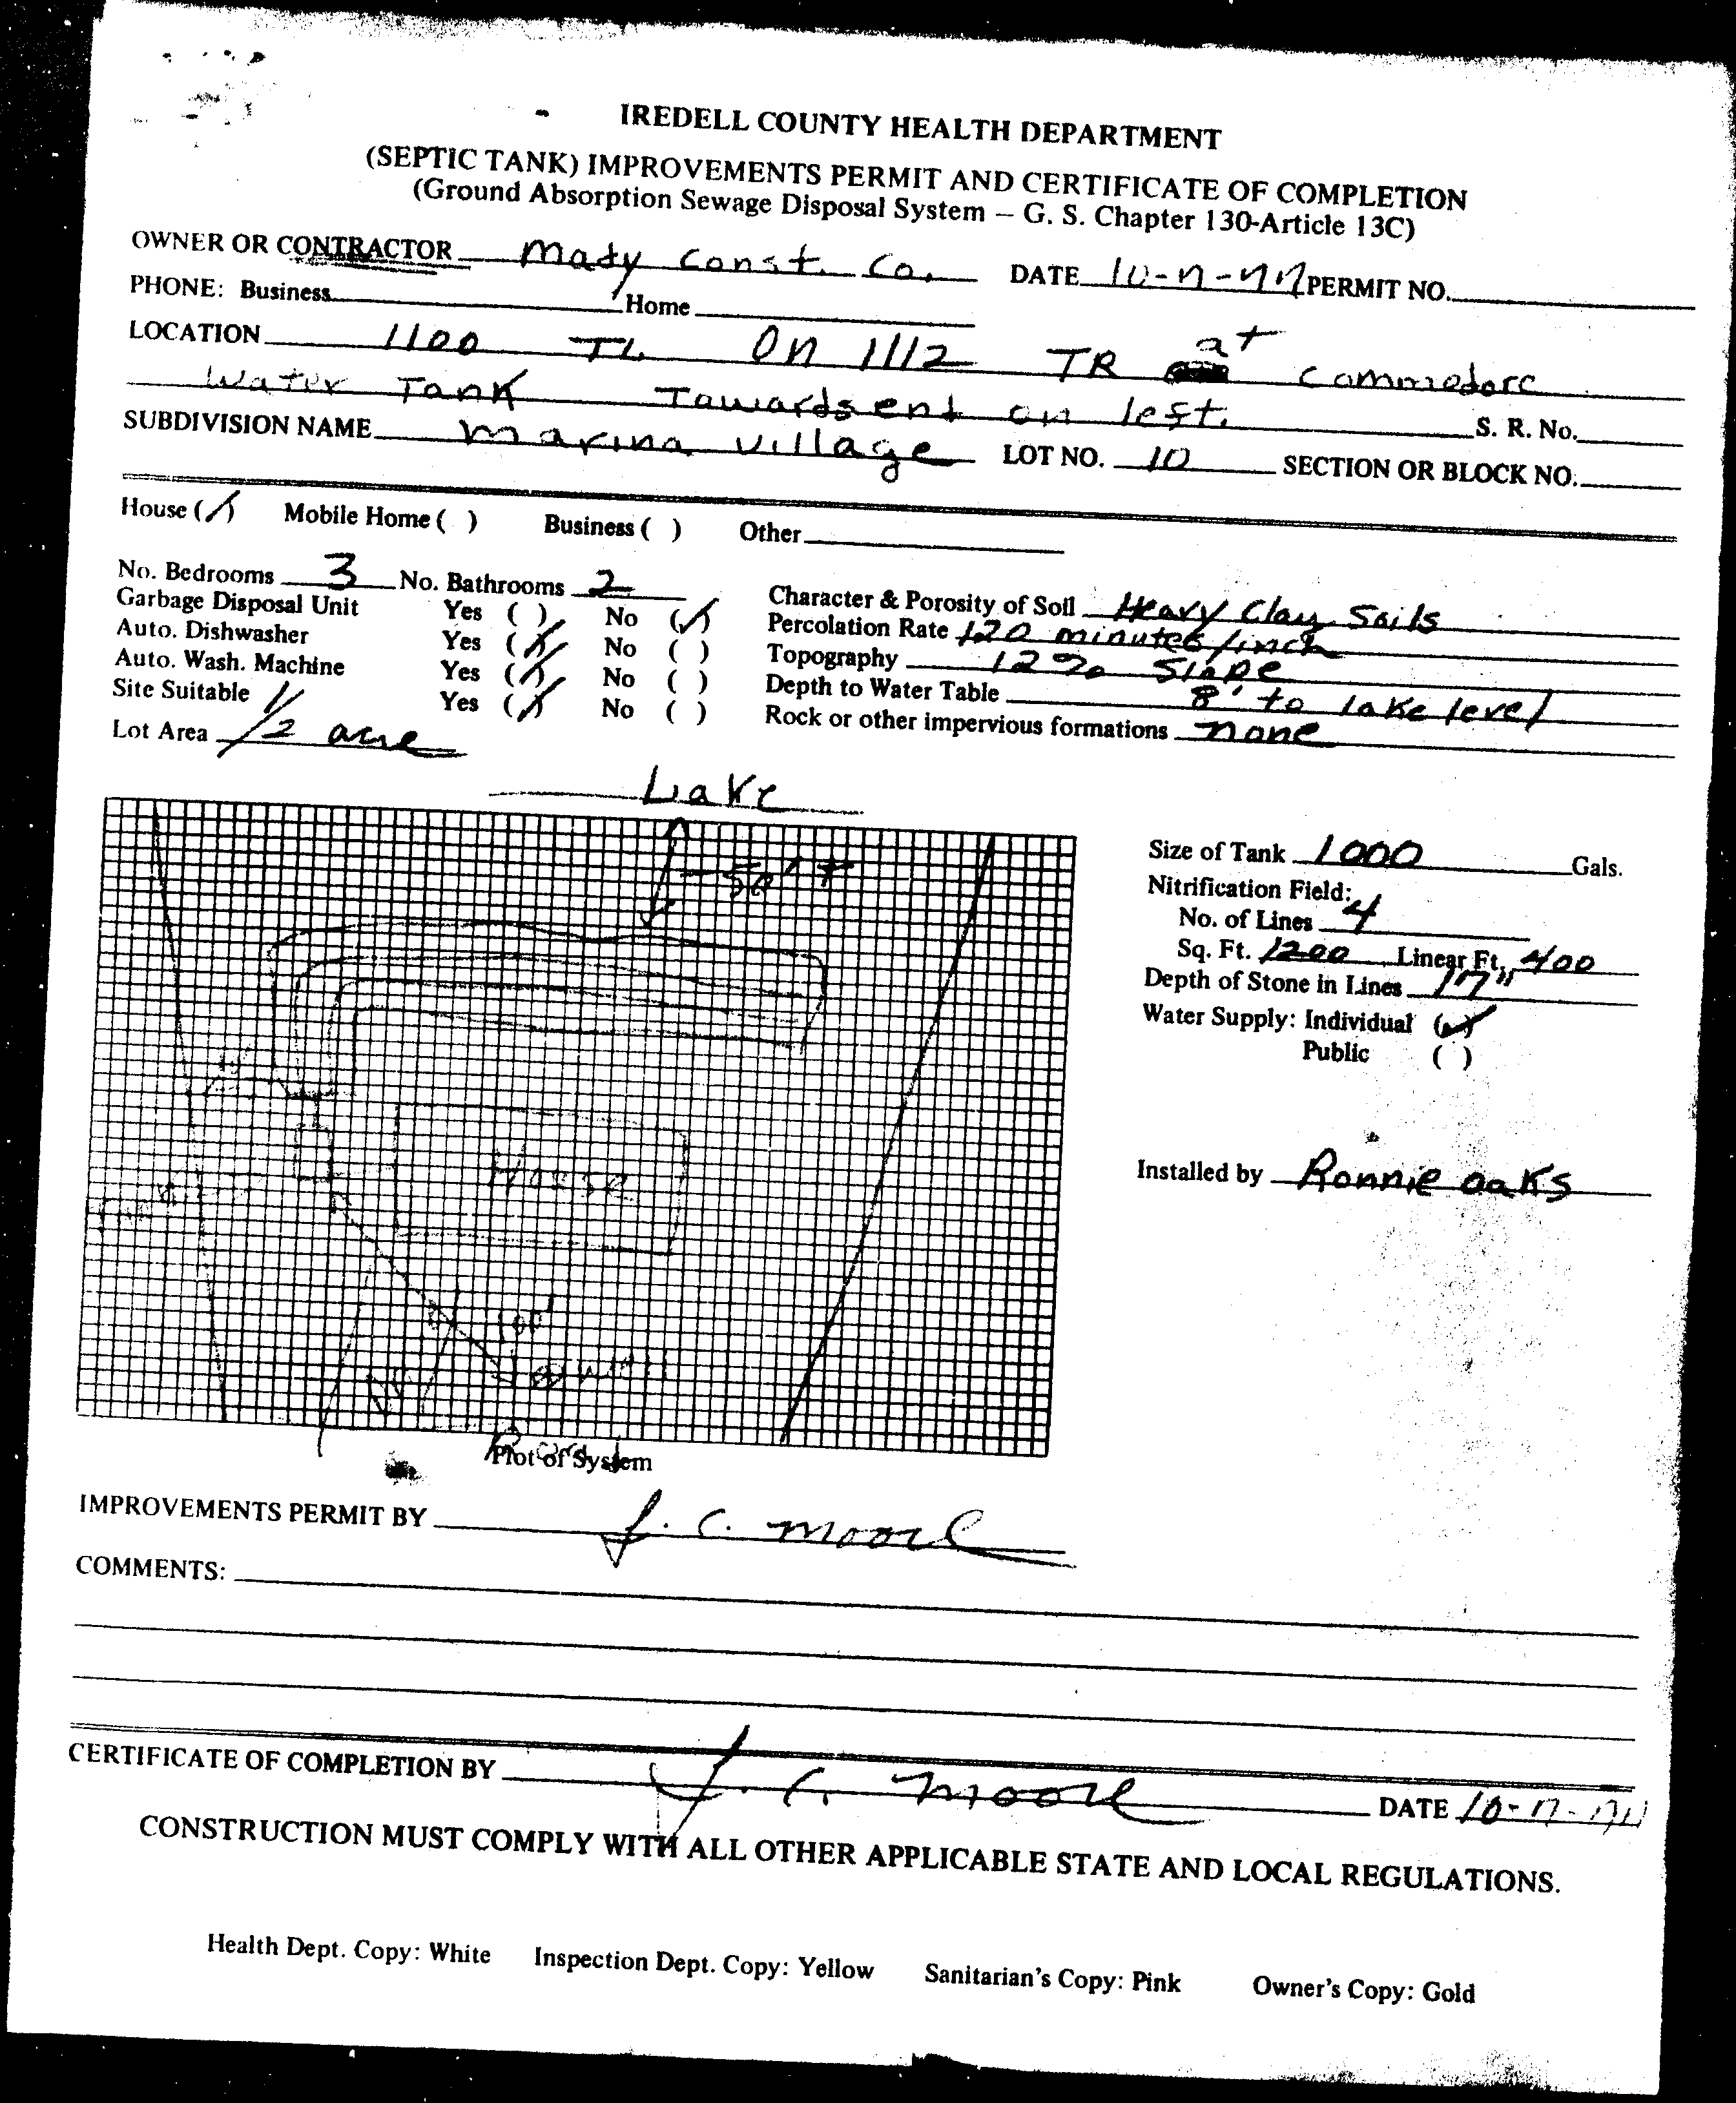 IREDELL COUNTY HEALTH DEPARTMENT
(SEPTIC TANK) IMPROVEMENTS PERMIT AND CERTIFICATE OF COMPLETION
(Ground Absorption Sewage Disposal System – G. S. Chapter 130-Article 13C)
OWNER OR CONTRACTOR Mady Const. Co. DATE 10-7-77 PERMIT NO.
PHONE: Business Home
LOCATION 1100 TL On 1112 TR at Commodore
Water Tank Towards end on left. S. R. No.
SUBDIVISION NAME Marina Village LOT NO. 10 SECTION OR BLOCK NO.
House (✓) Mobile Home ( ) Business ( ) Other
No. Bedrooms 3 No. Bathrooms 2
Garbage Disposal Unit Yes ( ) No (✓)
Auto. Dishwasher Yes (✓) No ( )
Auto. Wash. Machine Yes (✓) No ( )
Site Suitable Yes (✓) No ( )
Lot Area 1/2 acre
Character & Porosity of Soil Heavy Clay Soils
Percolation Rate 120 minutes/inch
Topography 12% Slope
Depth to Water Table 8' to lake level
Rock or other impervious formations none
Lake
50' +
House
100'
Well
Plot of System
Size of Tank 1000 Gals.
Nitrification Field:
No. of Lines 4
Sq. Ft. 1200 Linear Ft. 400
Depth of Stone in Lines 17"
Water Supply: Individual (✓)
Public ( )
Installed by Ronnie Oaks
IMPROVEMENTS PERMIT BY J. C. Moore
COMMENTS:
CERTIFICATE OF COMPLETION BY J. C. Moore DATE 10-7-77
CONSTRUCTION MUST COMPLY WITH ALL OTHER APPLICABLE STATE AND LOCAL REGULATIONS.
Health Dept. Copy: White Inspection Dept. Copy: Yellow Sanitarian's Copy: Pink Owner's Copy: Gold